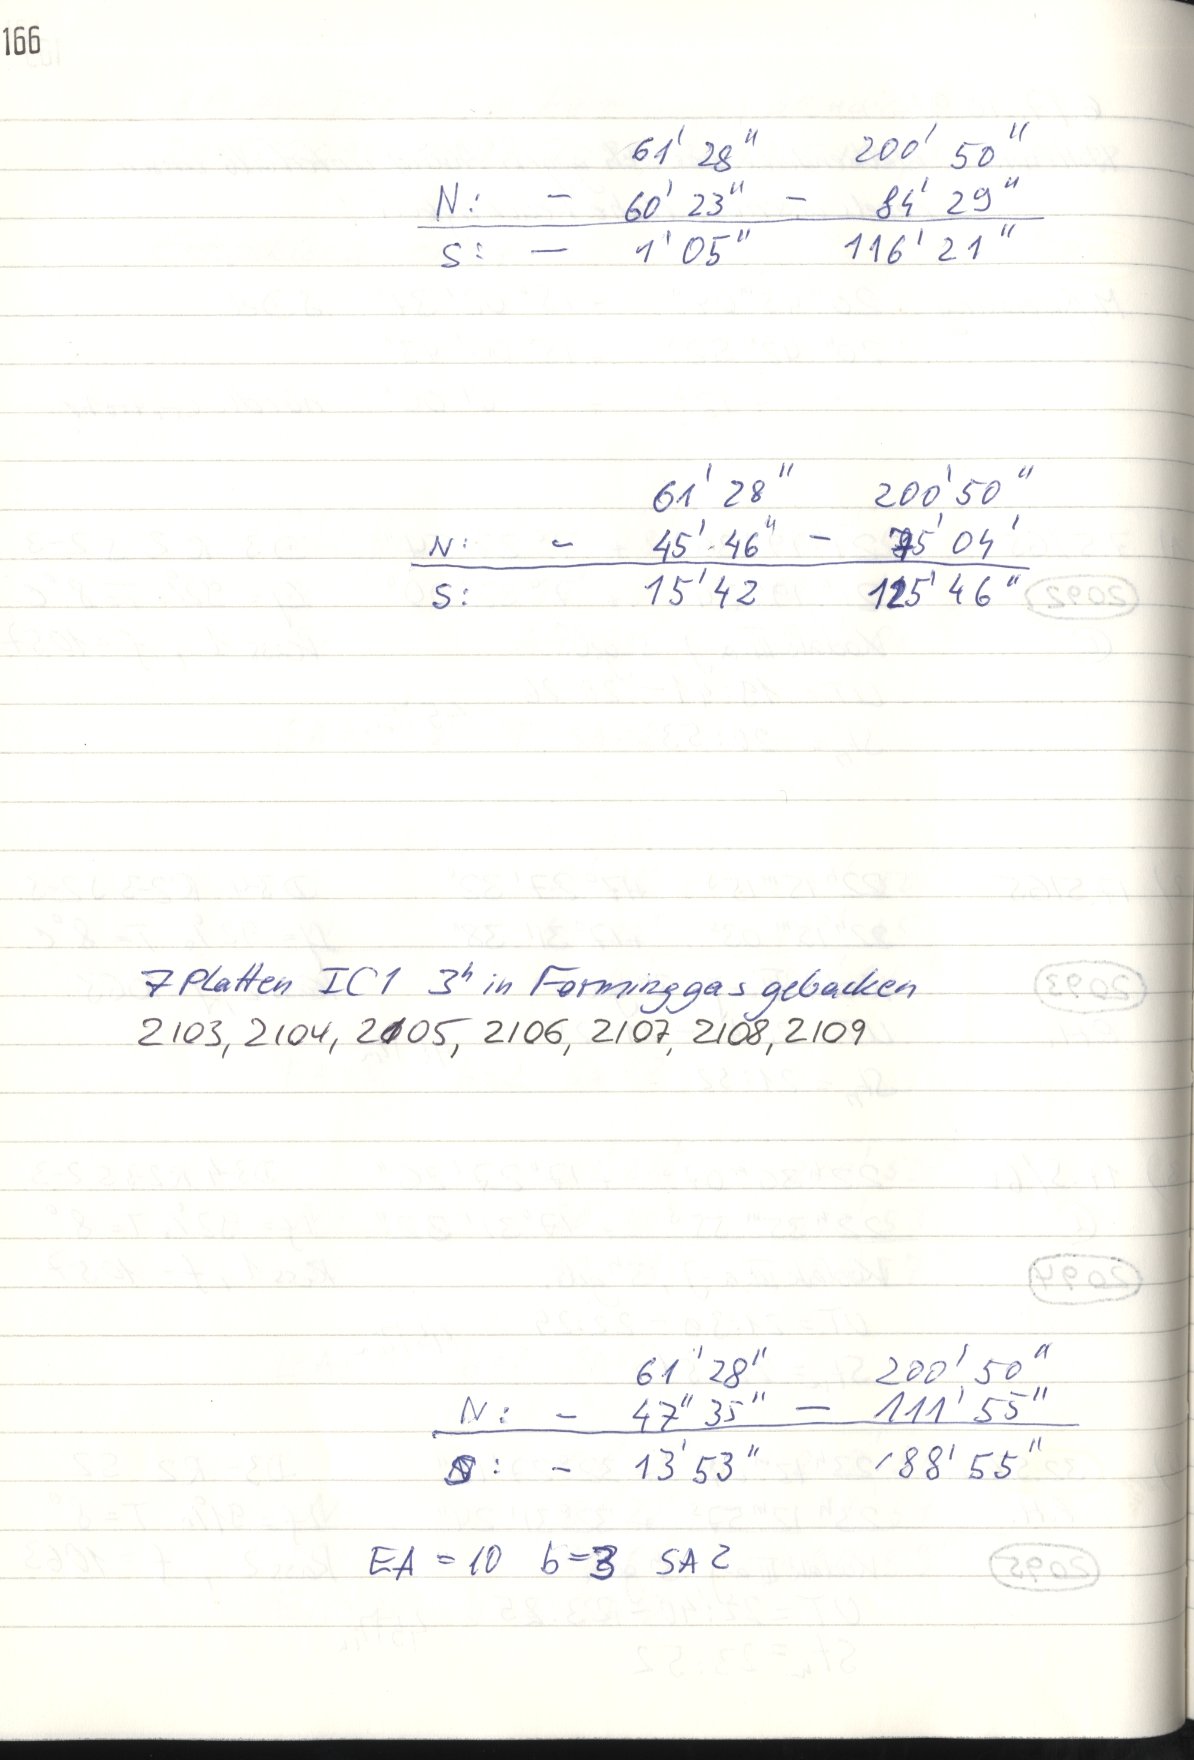 166
61' 28" 200' 50"
N: - 60' 23" - 84' 29"
S: - 1' 05" 116' 21"
61' 28" 200' 50"
N: - 45' 46" - 75' 04'
S: 15' 42 125' 46"
7 Platten IC1 3h in Forminggas gebacken
2103, 2104, 2105, 2106, 2107, 2108, 2109
61' 28" 200' 50"
N: - 47" 35" - 111' 55"
S: - 13' 53" 88' 55"
EA = 10 b=3 SA2